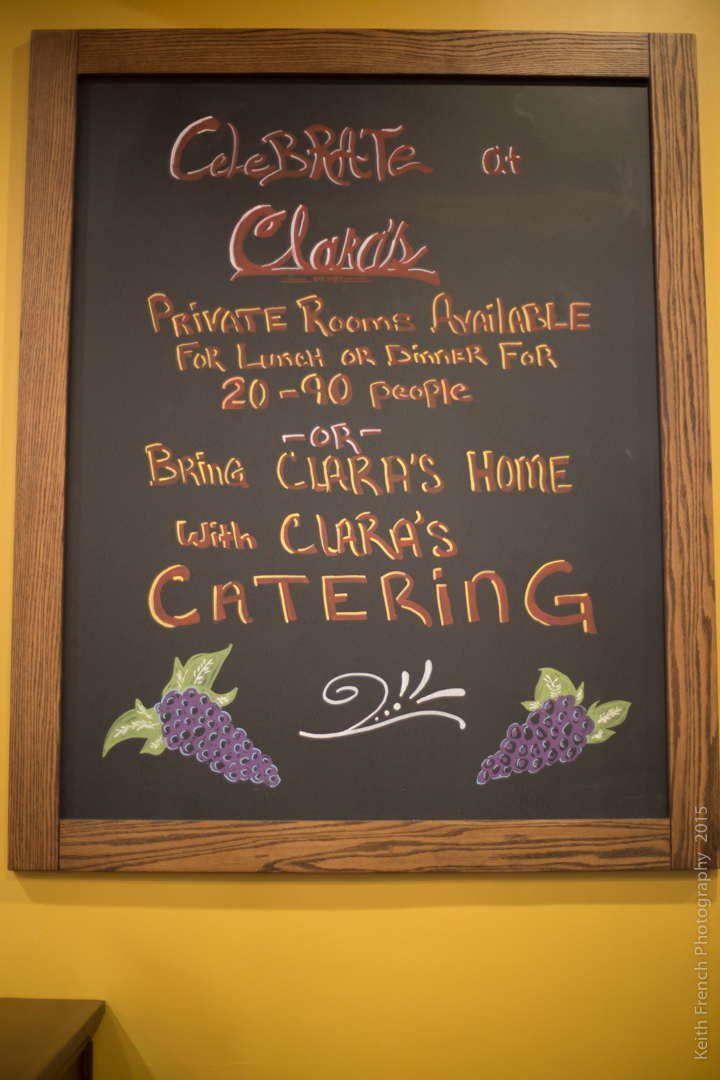 CeleBRATe at
Clara's
PRiVATE Rooms AVAiLABLE
FOR LUNCH OR DINNER FOR
20-90 people
-OR-
BRing CLARA'S HOME
With CLARA'S
CATERinG
Keith French Photography 2015